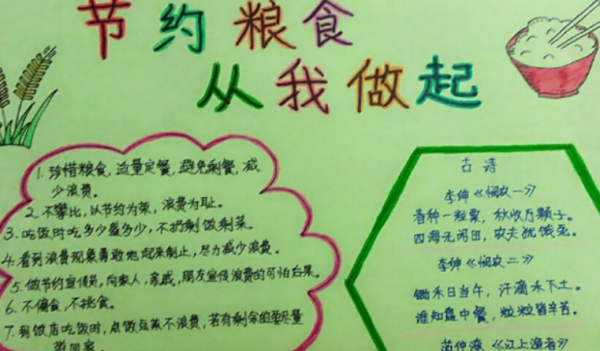 节约粮食
从我做起
1. 珍惜粮食，适量定餐，避免剩餐，减
少浪费。
2. 不攀比，以节约为荣，浪费为耻。
3. 吃饭时吃多少盛多少，不扔剩饭剩菜。
4. 看到浪费现象勇敢地起来制止，尽力减少浪费。
5. 做节约宣传员，向家人，亲戚，朋友宣传浪费的可怕后果。
6. 不偏食，不挑食。
7. 到饭店吃饭时，点饭点菜不浪费，若有剩余的要尽量
古诗
李绅《悯农一》
春种一粒粟，秋收万颗子。
四海无闲田，农夫犹饿死。
李绅《悯农二》
锄禾日当午，汗滴禾下土。
谁知盘中餐，粒粒皆辛苦。
范仲淹《江上渔者》